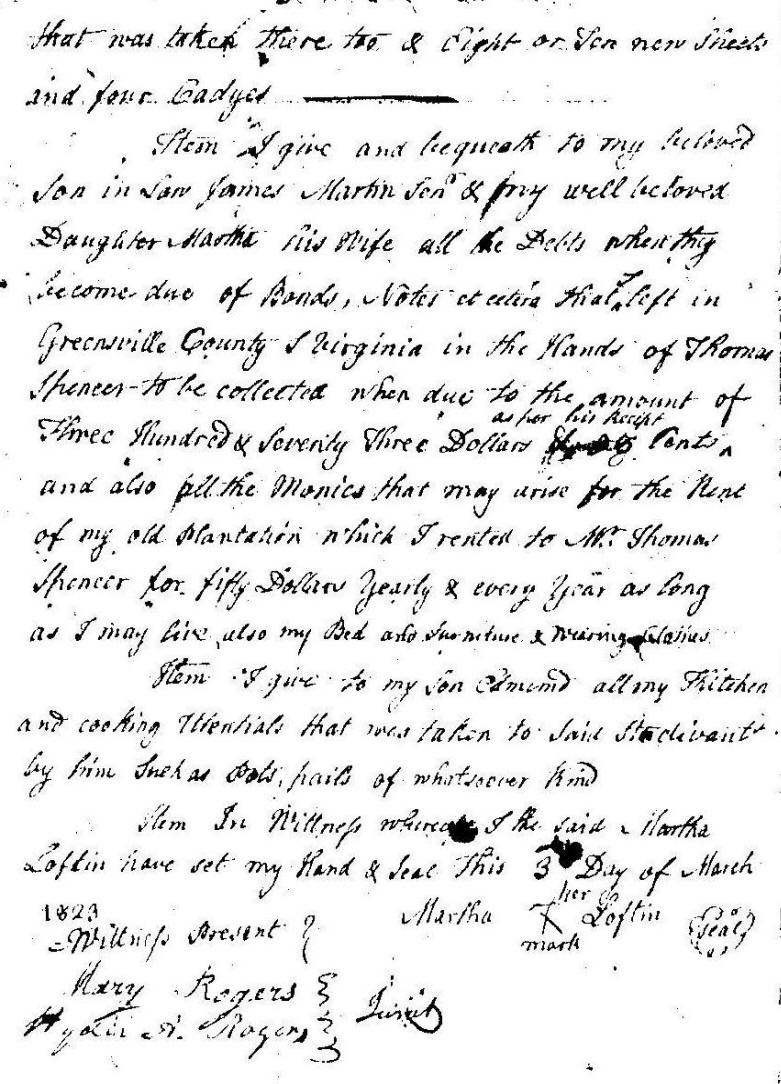 that was taken there too & Eight or Ten new Sheets
and four Cadyes
Item I give and bequeath to my beloved
Son in Law James Martin Senr & my well beloved
Daughter Martha his Wife all the Debts when they
become due of Bonds, Notes et cetira that I left in
Greensville County S Virginia in the Hands of Thomas
Spencer to be collected when due to the amount of
as per his Receipt
Three Hundred & Seventy Three Dollars Cents
and also all the Monies that may arise for the Rent
of my old Plantation which I rented to Mr. Thomas
Spencer for fifty Dollars Yearly & every Year as long
as I may live also my Bed and Furniture & wearing Clothes
Item I give to my Son Edmund all my Kitchen
and cooking Utentials that was taken to Said Studivants
by him Such as Pots, pails of whatsoever kind
Item In Wittness whereof I the said Martha
Loftin have set my Hand & Seal This 3 Day of March
1823
her
Martha X Loftin (Seal)
mark
Wittness Present
Mary Rogers
Rogers Jurat